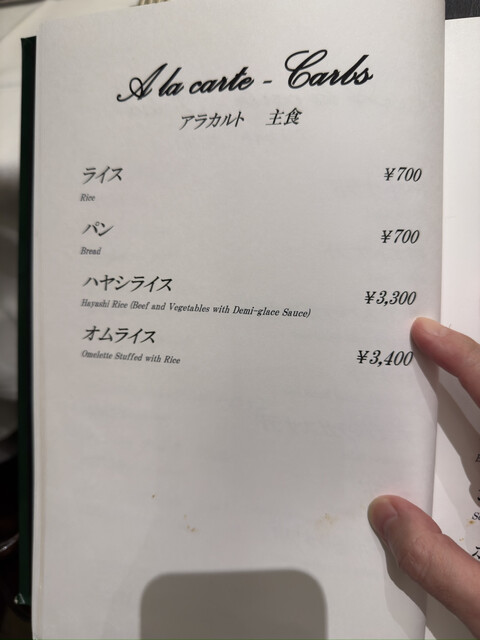 A la carte - Carbs
アラカルト 主食
ライス ¥700
Rice
パン ¥700
Bread
ハヤシライス ¥3,300
Hayashi Rice (Beef and Vegetables with Demi-glace Sauce)
オムライス ¥3,400
Omelette Stuffed with Rice